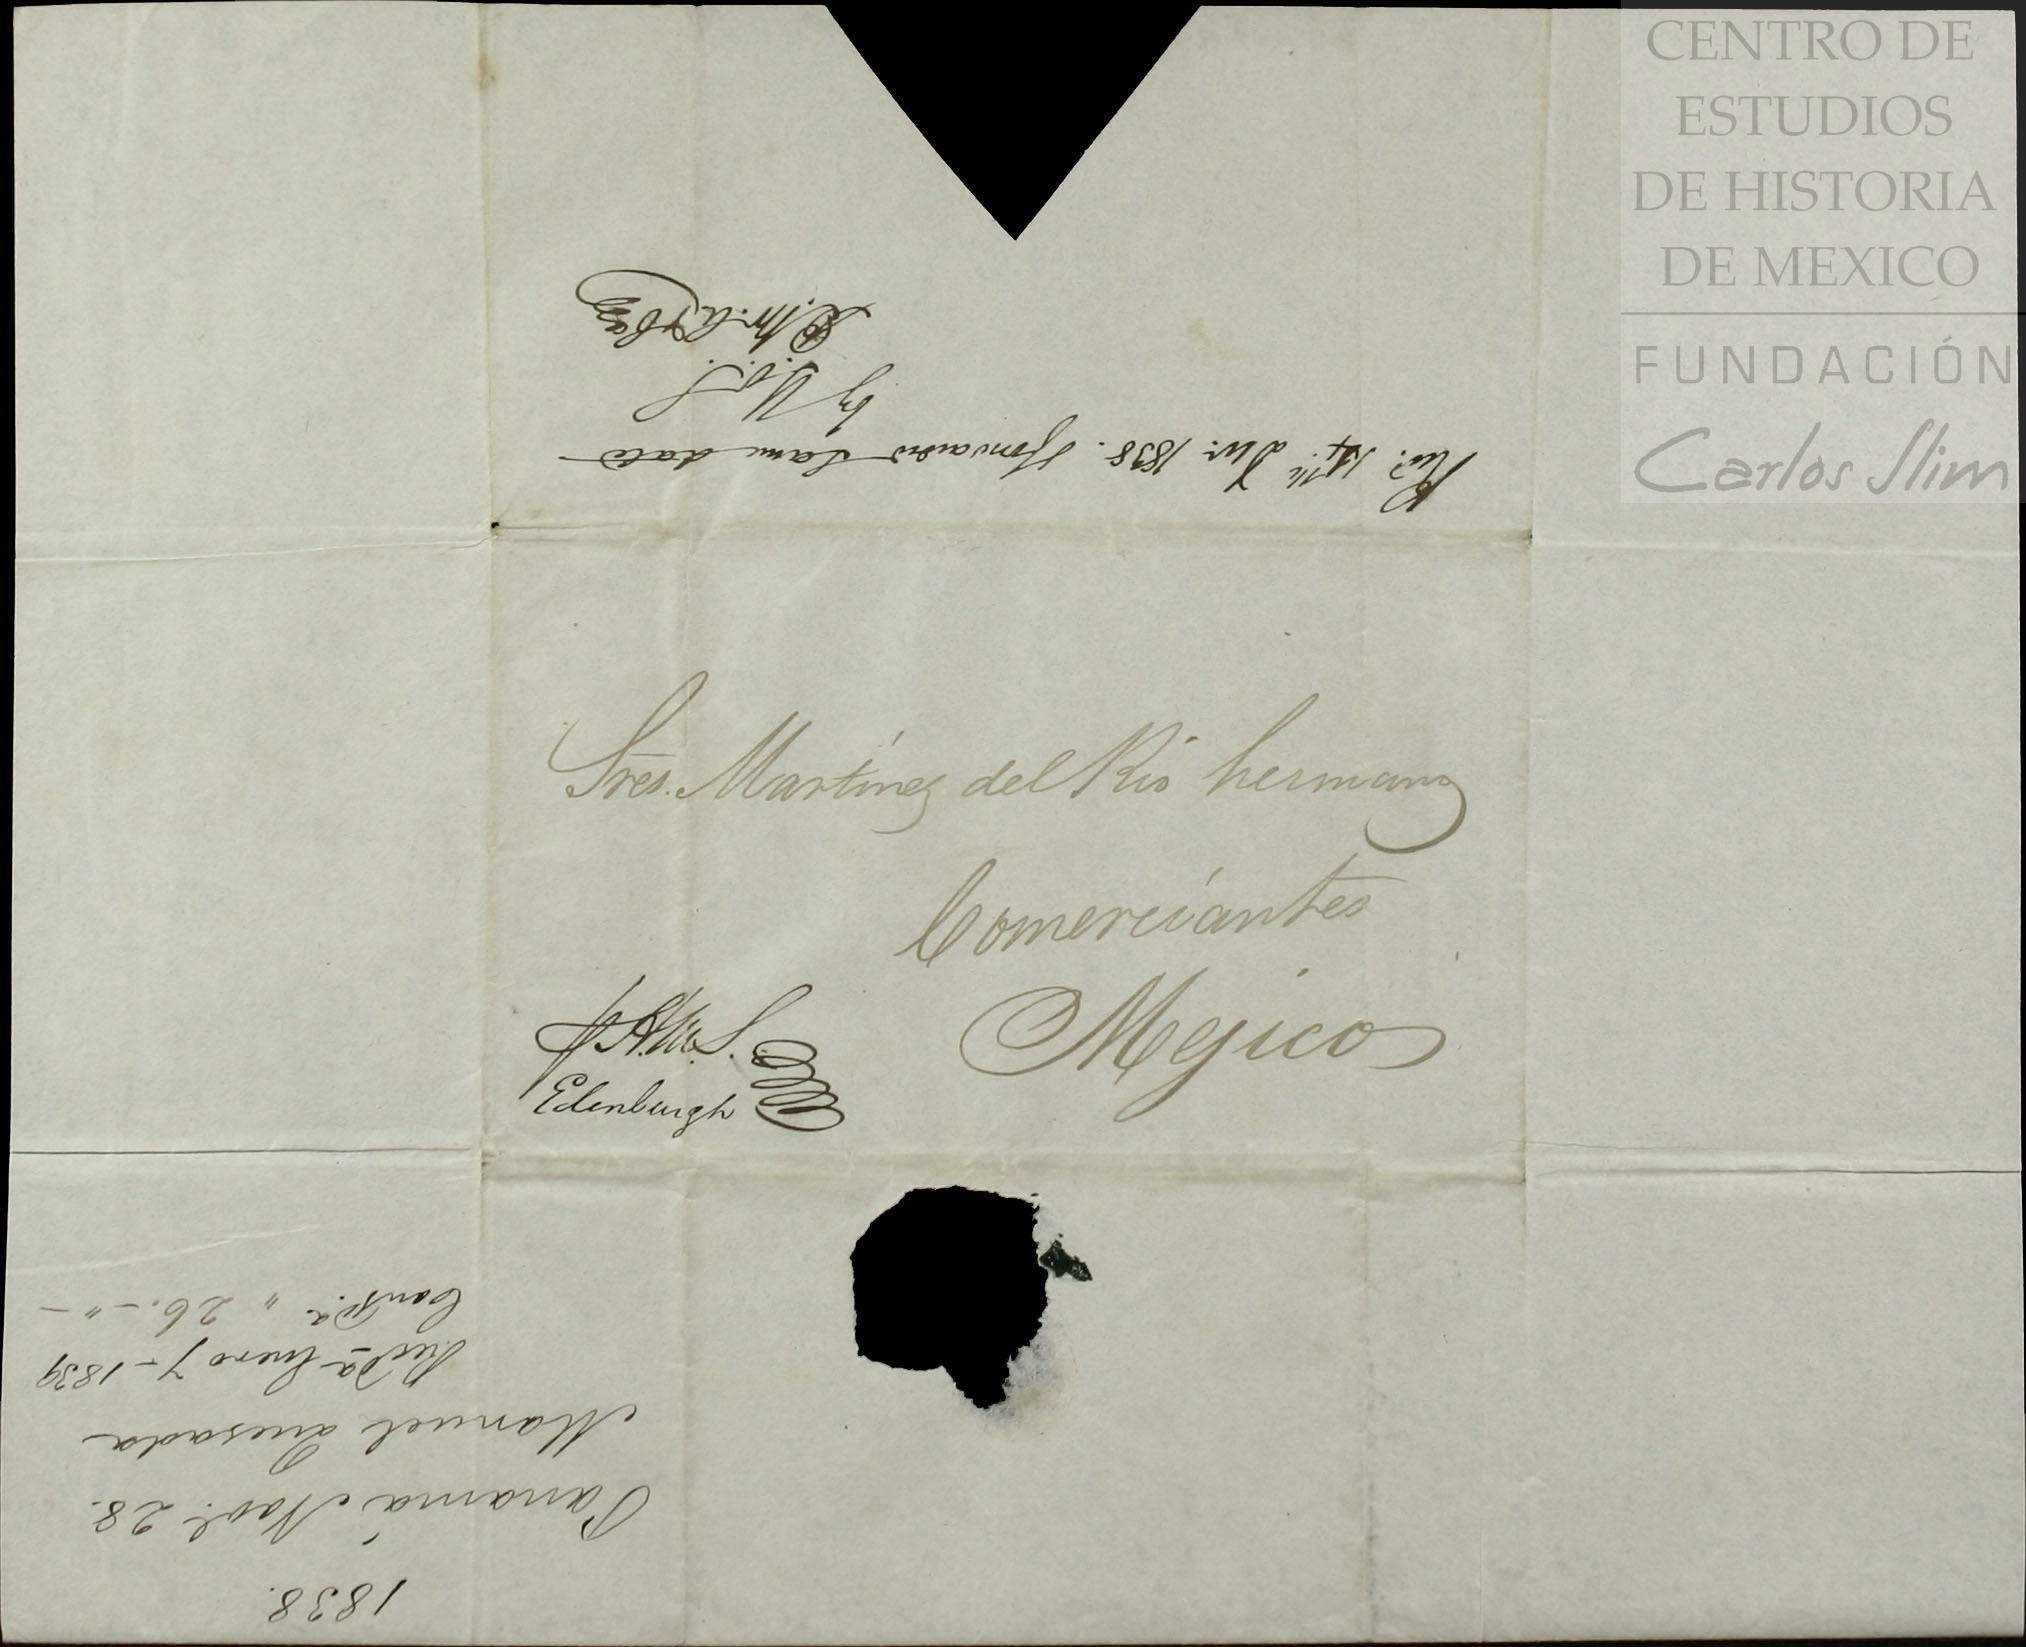 CENTRO DE
ESTUDIOS
DE HISTORIA
DE MEXICO
FUNDACIÓN
Carlos Slim
Recd. 14th Decr. 1838. Forwarded same date
by Yo. S.
Sres. Martínez del Rio hermanos
Comerciantes
Mejico
H.M.S.
Edenburgh
1838.
Panamá Novbe. 28.
Manuel Quesada
Recda Enero 7 - 1839
Contda. " 26. - " -